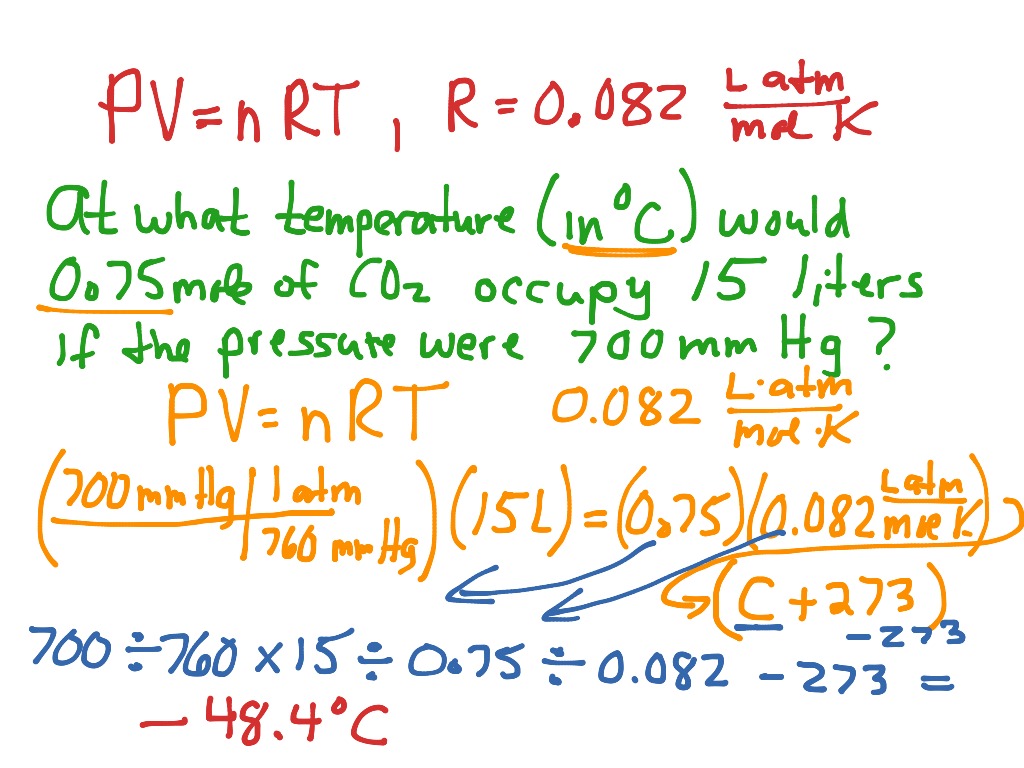 PV = nRT, R = 0.082 L atm / mol K
At what temperature (in °C) would
0.75 mol of CO₂ occupy 15 liters
if the pressure were 700 mm Hg ?
PV = nRT 0.082 L·atm / mol·K
(700 mmHg | 1 atm / 760 mmHg) (15 L) = (0.75) (0.082 L atm / mol K)
(C + 273)
-273
700 ÷ 760 × 15 ÷ 0.75 ÷ 0.082 - 273 =
- 48.4°C